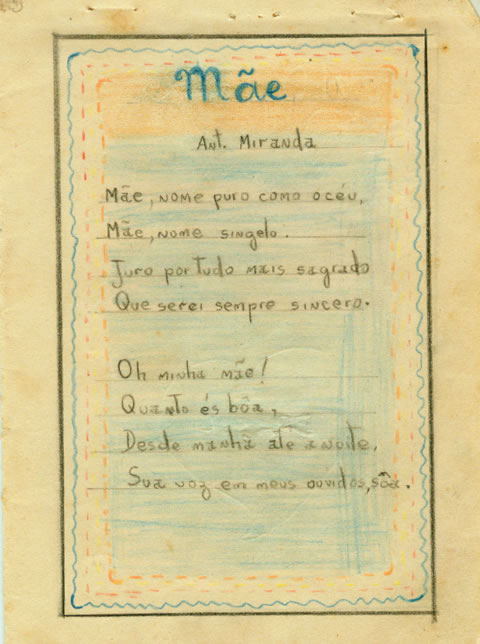 Mãe
Ant. Miranda
Mãe, nome puro como o céu,
Mãe, nome singelo.
Juro por tudo mais sagrado
Que serei sempre sincero.
Oh minha mãe!
Quanto és bôa,
Desde manhã ate a noite,
Sua voz em meus ouvidos, sôa.